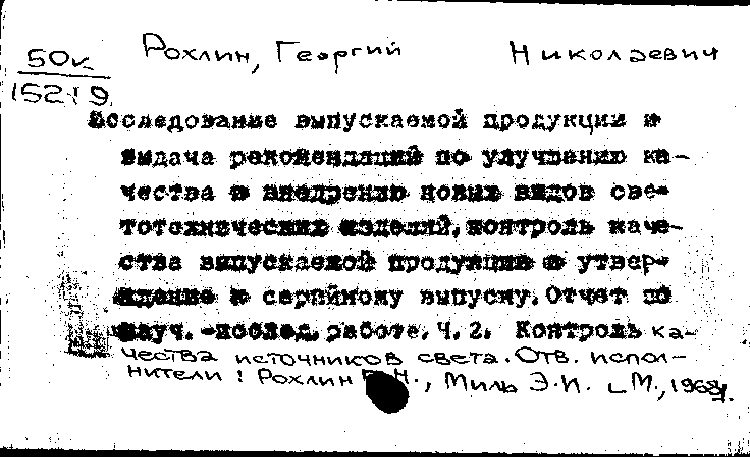 Рохлин, Георгий Николаевич
50к
15219
Исследование выпускаемой продукции и
выдача рекомендаций по улучшению ка-
чества и внедрению новых видов све-
тотехнических изделий, контроль каче-
ства выпускаемой продукции и утвер-
ждение к серийному выпуску. Отчет по
науч.-исслед. работе. Ч. 2. Контроль ка-
чества источников света. Отв. испол-
нители: Рохлин Г. Н., Миль Э. И. М.,